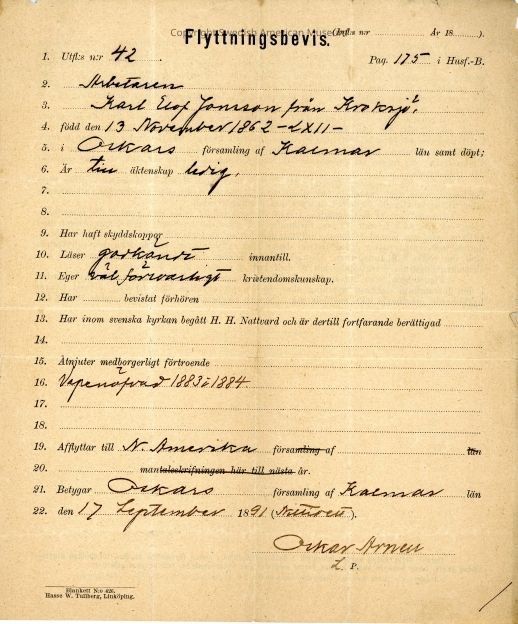 Copyright Swedish American Muse
Flyttningsbevis. (Infl.s n:r År 18 ).
1. Utfl:s n:r 42 Pag. 175 i Husf.-B.
2. Arbetaren
3. Karl Elof Jonsson från Kroksjö,
4. född den 13 November 1862 -LXII-
5. i Oskars församling af Kalmar län samt döpt;
6. Är till äktenskap ledig,
7.
8.
9. Har haft skyddskoppor
10. Läser godkändt innantill.
11. Eger väl försvarligt kristendomskunskap.
12. Har bevistat förhören
13. Har inom svenska kyrkan begått H. H. Nattvard och är dertill fortfarande berättigad
14.
15. Åtnjuter medborgerligt förtroende
16. Vapenöfvad 1883 o 1884.
17.
18.
19. Afflyttar till N. Amerika församling af län
20. mantalsskrifningen här till nästa år.
21. Betygar Oskars församling af Kalmar län
22. den 17 September 1891 ( ).
Oskar
L. P.
Blankett N:o 426.
Hasse W. Tullberg, Linköping.